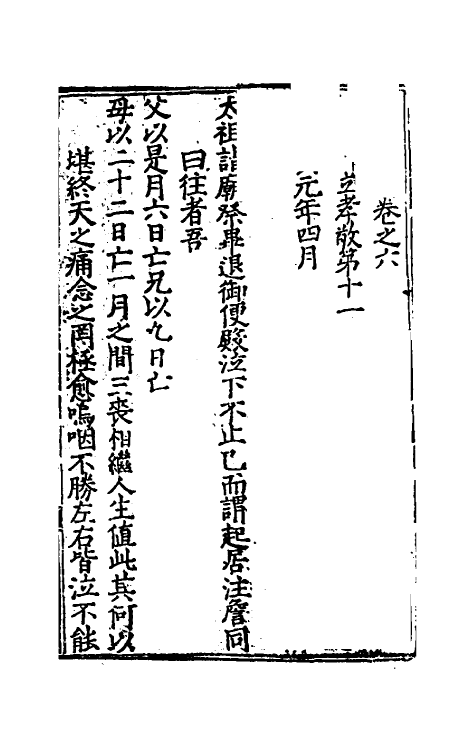 卷之六
立孝敬第十一
元年四月
太祖詣廟祭畢退御便殿泣下不止已而謂起居注詹同
曰往者吾
父以是月六日亡兄以九日亡
母以二十二日亡一月之間三喪相繼人生值此其何以
堪終天之痛念之罔極愈嗚咽不勝左右皆泣不能